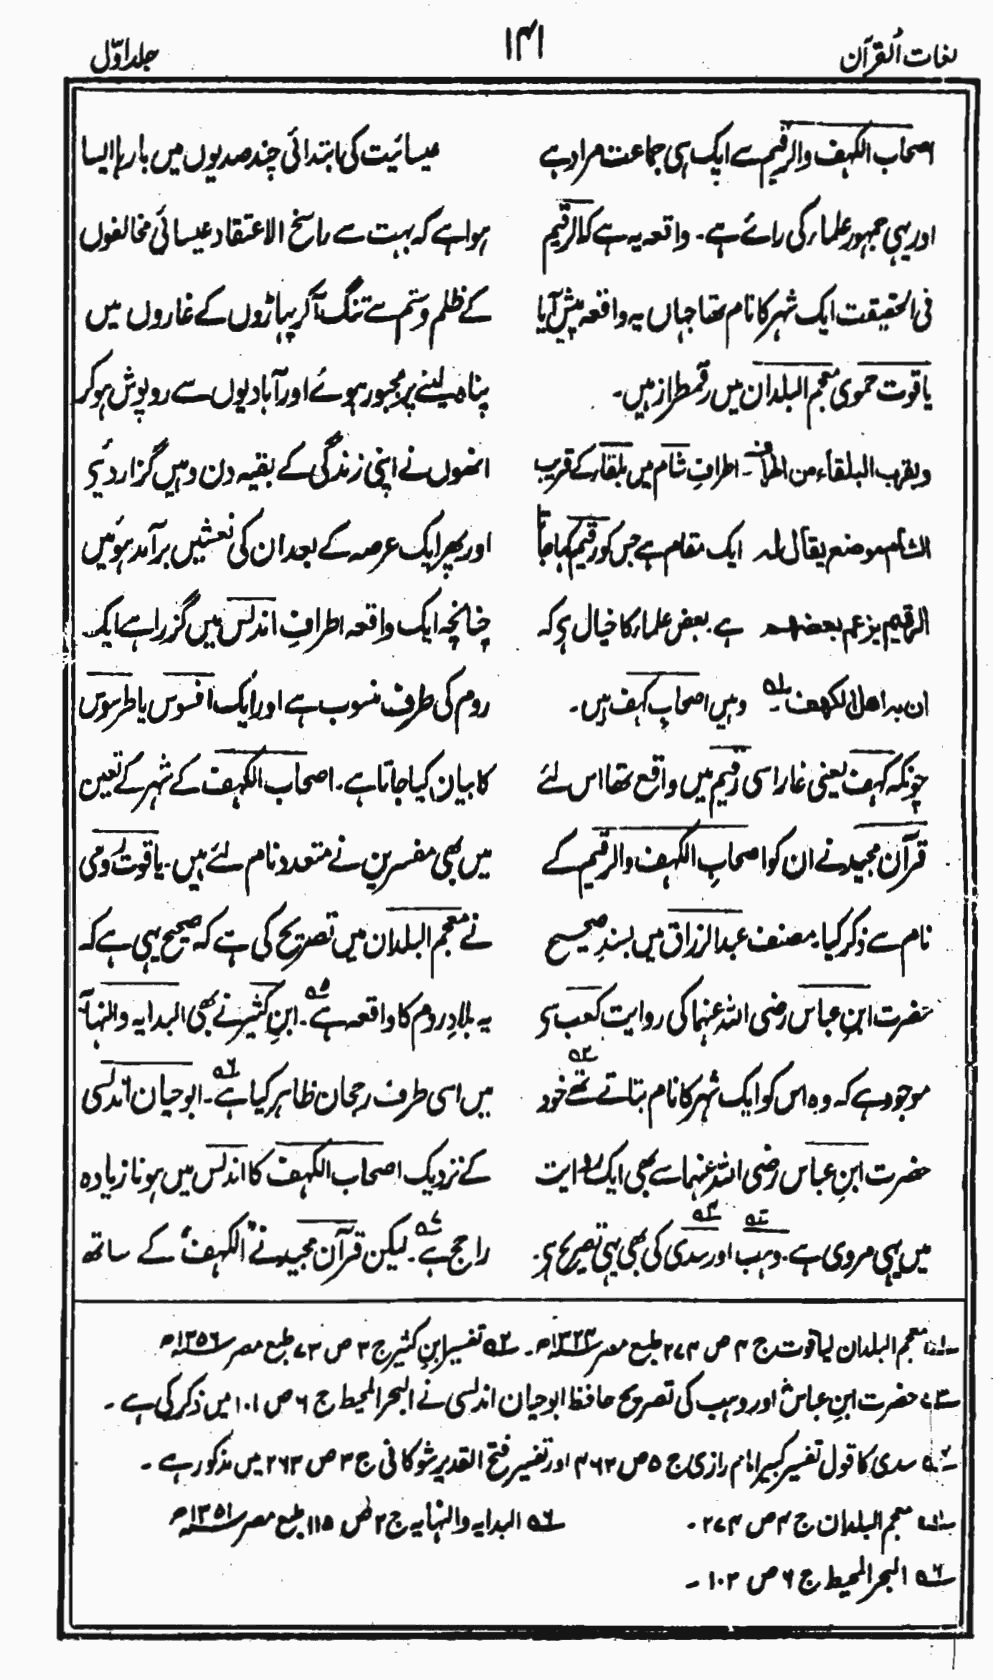 لغات القرآن
۱۴۱
جلد اوّل
اصحاب الکہف والرقیم سے ایک ہی جماعت مراد ہے
اور یہی جمہور علماء کی رائے ہے۔ واقعہ یہ ہے کہ الرقیم
فی الحقیقت ایک شہر کا نام تھا جہاں یہ واقعہ پیش آیا
یاقوت حموی معجم البلدان میں رقمطراز ہیں۔
وبقرب البلقاء من اطراف ۔ اطرافِ شام میں بلقاء کے قریب
الشام موضع یقال لہ ایک مقام ہے جس کو رقیم کہا جاتا
الرقیم یزعم بعضھم ہے۔ بعض علماء کا خیال ہے کہ
ان بہ اھل الکھف ۔ ۱ وہیں اصحابِ کہف ہیں۔
چونکہ کہف یعنی غار اسی رقیم میں واقع تھا اس لئے
قرآن مجید نے ان کو اصحابِ الکہف والرقیم کے
نام سے ذکر کیا۔ مصنف عبد الرزاق میں بسندِ صحیح
حضرت ابنِ عباس رضی اللہ عنہما کی روایت کعب سے
موجود ہے کہ وہ اس کو ایک شہر کا نام بتاتے تھے ۲ خود
حضرت ابنِ عباس رضی اللہ عنہما سے بھی ایک روایت
میں یہی مروی ہے۔ وہب ۳ اور سدی ۴ کی بھی یہی تصریح ہے۔
عیسائیت کی ابتدائی چند صدیوں میں بارہا ایسا
ہوا ہے کہ بہت سے راسخ الاعتقاد عیسائی مخالفوں
کے ظلم وستم سے تنگ آ کر پہاڑوں کے غاروں میں
پناہ لینے پر مجبور ہوئے اور آبادیوں سے روپوش ہو کر
انھوں نے اپنی زندگی کے بقیہ دن وہیں گزار دئیے
اور پھر ایک عرصہ کے بعد ان کی نعشیں برآمد ہوئیں
چنانچہ ایک واقعہ اطرافِ اندلس میں گزرا ہے ایک
روم کی طرف منسوب ہے اور ایک افسوس یا طرسوس
کا بیان کیا جاتا ہے۔ اصحاب الکہف کے شہر کے تعین
میں بھی مفسرین نے متعدد نام لئے ہیں۔ یاقوت رومی
نے معجم البلدان میں تصریح کی ہے کہ صحیح یہی ہے کہ
یہ بلادِ روم کا واقعہ ہے ۵۔ ابنِ کثیر نے بھی البدایہ والنہایہ
میں اسی طرف رجحان ظاہر کیا ہے ۶۔ ابوحیان اندلسی
کے نزدیک اصحاب الکہف کا اندلس میں ہونا زیادہ
راجح ہے ۷۔ لیکن قرآن مجید نے "الکہف" کے ساتھ
۱ معجم البلدان لیاقوت ج ۴ ص ۲۷۴ طبع مصر ۱۳۲۴ھ۔ ۲ تفسیر ابنِ کثیر ج ۳ ص ۷۳ طبع مصر ۱۳۵۶ھ
۳ حضرت ابنِ عباسؓ اور وہب کی تصریح حافظ ابوحیان اندلسی نے البحر المحیط ج ۶ ص ۱۰۱ میں ذکر کی ہے۔
۴ سدی کا قول تفسیر کبیر امام رازی ج ۵ ص ۴۶۲ اور تفسیر فتح القدیر شوکانی ج ۳ ص ۲۶۳ میں مذکور ہے۔
معجم البلدان ج ۴ ص ۲۷۴۔ ۶ البدایہ والنہایہ ج ۲ ص ۱۱۵ طبع مصر ۱۳۵۱ھ
۶ البحر المحیط ج ۶ ص ۱۰۲۔